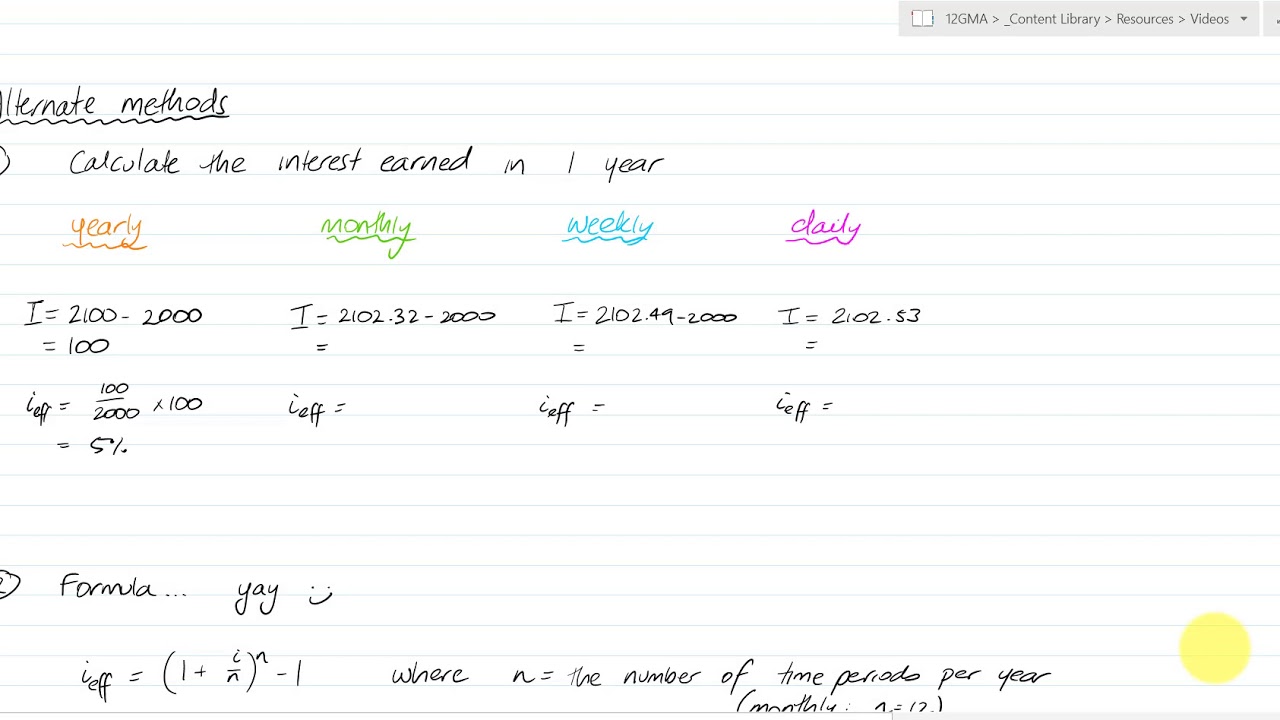 12GMA > _Content Library > Resources > Videos
Alternate methods
Calculate the interest earned in 1 year
yearly monthly weekly daily
I = 2100 - 2000 I = 2102.32 - 2000 I = 2102.49 - 2000 I = 2102.53
= 100 = = =
i_eff = 100/2000 × 100 i_eff = i_eff = i_eff =
= 5%
2 Formula... yay :)
i_eff = (1 + i/n)^n - 1 where n = the number of time periods per year
(monthly: n = 12)